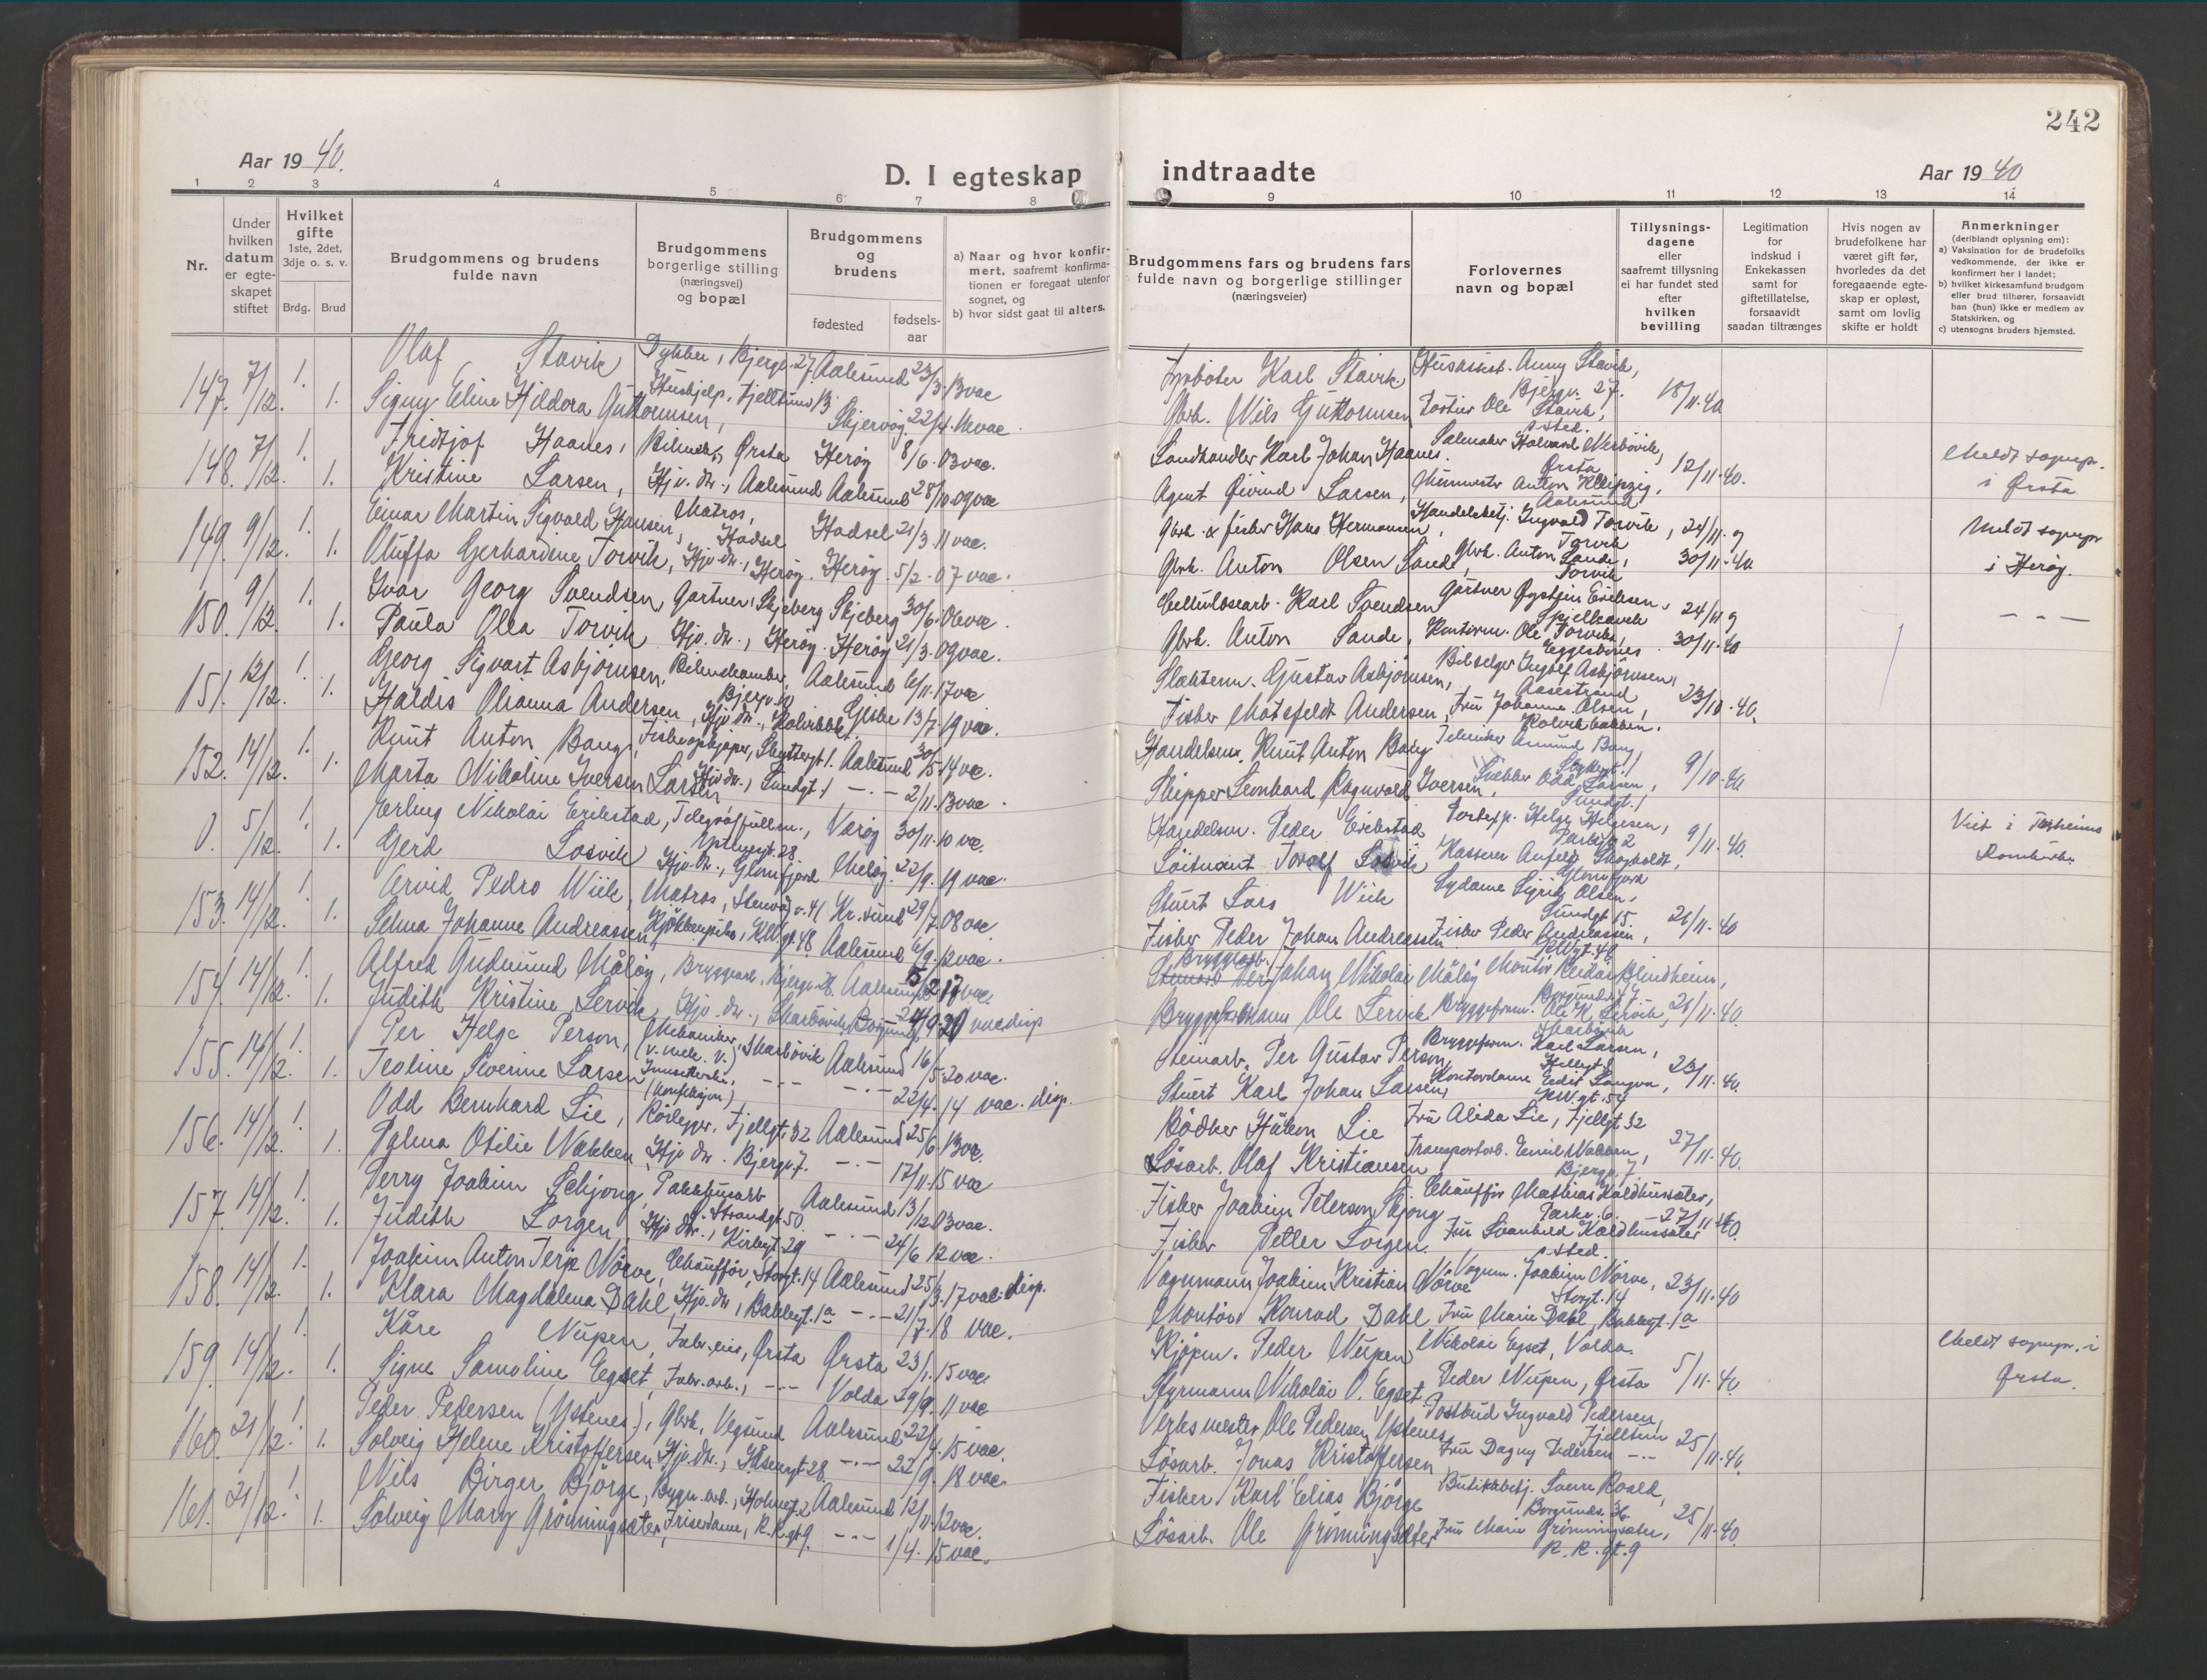 242
Aar 19 40.
D. I egteskap indtraadte
Aar 19 40
1 2 3 4 5 6 7 8 9 10 11 12 13 14
Nr.
Under hvilken datum er egte-skapet stiftet
Hvilket gifte
1ste, 2det, 3dje o. s. v.
Brdg. Brud
Brudgommens og brudens fulde navn
Brudgommens borgerlige stilling (næringsvei) og bopæl
Brudgommens og brudens
fødested
fødsels-aar
a) Naar og hvor konfir-mert, saafremt konfirma-tionen er foregaat utenfor sognet, og
b) hvor sidst gaat til alters.
Brudgommens fars og brudens fars fulde navn og borgerlige stillinger (næringsveier)
Forlovernes navn og bopæl
Tillysnings-dagene eller saafremt tillysning ei har fundet sted efter hvilken bevilling
Legitimation for indskud i Enkekassen samt for giftetillatelse, forsaavidt saadan tiltrænges
Hvis nogen av brudefolkene har været gift før, hvorledes da det foregaaende egte-skap er opløst, samt om lovlig skifte er holdt
Anmerkninger (deriblandt oplysning om):
a) Vaksination for de brudefolks vedkommende, der ikke er konfirmert her i landet;
b) hvilket kirkesamfund brudgom eller brud tilhører, forsaavidt han (hun) ikke er medlem av Statskirken, og
c) utensogns bruders hjemsted.
147. 7/12. 1. Olaf Stavik Bjergv. 27. Aalesund 23/3. 13 vac Karl Stavik Anny Stavik, Bjergv. 27. 18/11-40
1. Signy Eline Hildora Guttormsen, Hushjelp, Fjelltun 13 Skjervøy 22/4. vac. Gbrk. Nils Guttormsen Ole Stavik, sted.
148. 7/12. 1. Fridtjof Haanes, Ørsta Herøy 8/6. 03 vac. Landhandler Karl Johan Haanes. Salmaker Ørsta 12/11-40. Meldt sognepr. i Ørsta
1. Kristine Larsen, Hjv. dr., Aalesund Aalesund 28/10. 09 vac Agent Øivind Larsen, Anton Aalesund
149. 9/12. 1. Einar Martin Sigvald Hansen, Matros, Hadsel Hadsel 21/3. 11 vac. Gbrk. & fisker Hans Hermansen, Handelsbetj. Ingvald Torvik, Torvik 24/11. Meldt sognepr i Herøy.
1. Oluffa Gerhardine Torvik, Hjv. dr., Herøy. Herøy. 5/2. 07 vac. Gbrk. Anton Olsen Sande, Gbrk. Anton Sande, Torvik 30/11-40
150. 9/12. 1. Ivar Georg Svendsen, Gartner, Skjeberg Skjeberg 30/6. 06 vac. Cellulosearb. Karl Svendsen Gartner Øystein Eriksen, Spjelkavik 24/11 — — —
1. Paula Olea Torvik Hjv. dr., Herøy. Herøy 21/3. 09 vac. Gbrk. Anton Sande, Kontorm. Ole Torvik, Eggesbønes 30/11-40
151. 12/12. 1. Georg Sigvart Asbjørnsen, Bjergv. 10 Aalesund 6/11. 17 vac Gustav Asbjørnsen, Bilselger Ingolf Asbjørnsen, Aasestrand 23/10-40.
1. Haldis Olianna Andersen, Hjv. dr., Kolvikbak. Giske 13/7. 19 vac. Fisker Motzfeldt Andersen, Fru Johanne Olsen, Kolvikbakken.
152. 14/12. 1. Knut Anton Bang, Fiskeopkjøper, Skuttergt. 1. Aalesund 30/5. 14 vac. Handelsm. Knut Anton Bang Amund Bang, 9/10-40
1. Marta Nikoline Iversen Larsen Hjv. dr., Sundgt. 1 —·— 2/11. 13 vac. Skipper Leonhard Ragnvald Iversen, Odd Larsen, Sundgt. 1
0. 5/12. 1. Erling Nikolai Erikstad, Telegraffullm., 28 Værøy 30/11. 10 vac. Handelsm. Peder Erikstad Helge Helgesen, 2 9/11-40. Viet i
1. Gerd Losvik Hjv. dr., Glomfjord Meløy. 22/9. 19 vac. Løitnant Torolf Losvik Kasserer Glomfjord
153. 14/12. 1. Arvid Pedro Wiik, Matros, 41 Kr.sund 29/7. 08 vac Stuert Lars Wiik Sydame Sigrid Olsen, Sundgt. 15 26/11-40
1. Selma Johanne Andreassen, Kjøkkenpike, 48. Aalesund 6/9. 12 vac. Fisker Peder Johan Andreassen Fisker Peder Andreassen,
154. 14/12. 1. Alfred Gudmund Måløy, Bryggearb., Bjergv. 28. Aalesund 5/2 17 vac. Bryggearb. Johan Nikolai Måløy Montør Reidar Blindheim, 26/11-40.
1. Judith Kristine Servik, Hjv. dr., Skarbøvik Borgund 20 vac. disp Bryggeformann Ole Servik Bryggeform. Ole K. Servik, Skarbøvik
155. 14/12. 1. Per Helge Person, Mekaniker, (v. mek. v.) Skarbøvik Aalesund 16/5. 20 vac. Steinarb. Per Gustav Person, Bryggeform. Karl Larsen, 23/11-40.
1. Teoline Severine Larsen (konfeksjon) —·— —·— 22/4. 14 vac. disp. Stuert Karl Johan Larsen, Kontordame Edit 54
156. 14/12. 1. Odd Bernhard Lie, Rørlegger, Fjellgt. 32 Aalesund 25/6. 13 vac. Bødker Håkon Lie Fru Alida Lie, Fjellgt. 32 27/11-40.
1. Palma Otilie Nakken, Hjv. dr. Bjergv. 7. —·— 17/11. 15 vac Løsarb. Olaf Kristiansen, Transportarb. Emil Nakken, Bjergv. 7.
157. 14/12. 1. Perry Joakim Schjong, Pakkhusarb Strandgt. 50. Aalesund 13/12. 03 vac. Fisker Joakim Peterson Skjong Chauffør Mathias Kaldhussæter, Parkv. 6. 27/11-40.
1. Judith Sorgen, Hjv. dr., Kirkegt. 29 —·— 24/6 12 vac. Fisker Petter Sorgen. Fru Svanhild Kaldhussæter sted.
158. 14/12. 1. Joakim Anton Terje Nørve, Chauffør, Storgt. 14 Aalesund 25/3. 17 vac. disp. Vognmann Joakim Kristian Nørve Vognm. Joakim Nørve, Storgt. 14 23/11-40
1. Klara Magdalena Dahl, Hjv. dr., Bakkegt. 1a —·— 21/7. 18 vac. Montør Konrad Dahl Fru Marie Dahl, Bakkegt. 1a
159. 14/12. 1. Kåre Nupen, Fabr.eier, Ørsta Ørsta 23/1. 15 vac. Kjøpm. Peder Nupen Nikolai Egset, Volda. 5/11-40. Meldt sognepr. i Ørsta.
1. Signe Samoline Egset, Fabr.arb., —·— Volda 29/9. 11 vac Styrmann Nikolai O. Egset Peder Nupen, Ørsta
160. 21/12. 1. Peder Pedersen (Ystenes), Gbrk, Vegsund Aalesund 22/4. 15 vac. Verksmester Ole Pedersen Ystenes Postbud Ingvald Pedersen, Fjelltun 25/11-40.
1. Solveig Helene Kristoffersen, Hjv. dr., 28. —·— 22/9. 18 vac. Løsarb. Jonas Kristoffersen Fru Dagny Pedersen —·—
161. 21/12. 1. Nils Birger Bjørge, Bygn.arb., Aalesund 12/11. 12 vac. Fisker Karl Elias Bjørge Butikkbetj. Sverre Roald, Borgundv. 36 25/11-40.
1. Solveig Mary Grønningsæter, Friserdame, R. R. gt. 9. —·— 1/4. 15 vac. Løsarb. Ole Grønningsæter Fru Marie Grønningsæter, R. R. gt. 9